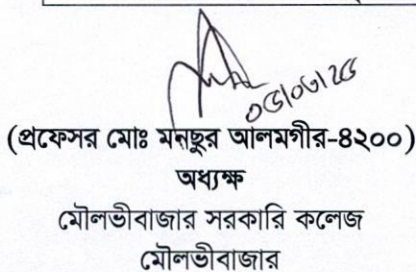 (প্রফেসর মোঃ মনছুর আলমগীর-৪২০০)
অধ্যক্ষ
মৌলভীবাজার সরকারি কলেজ
মৌলভীবাজার